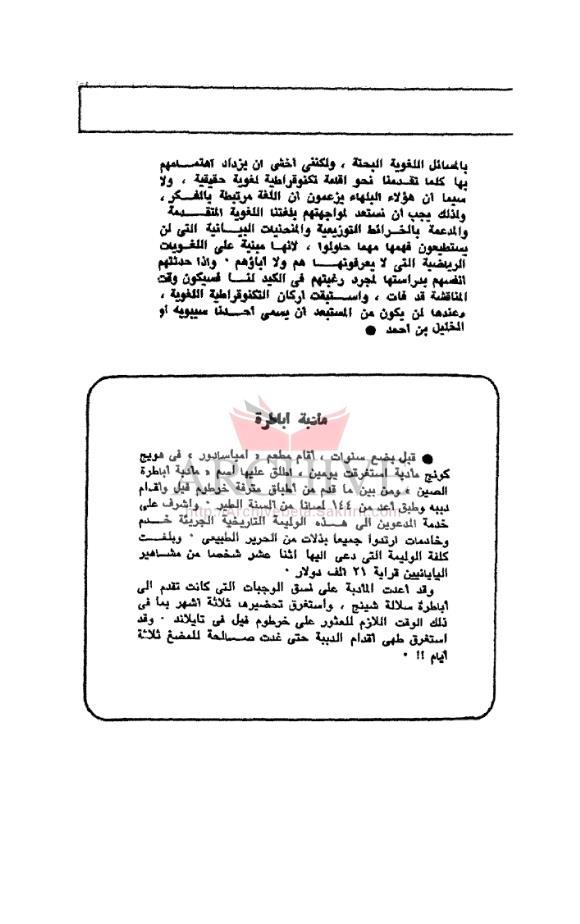 بالمسائل اللغوية البحتة ، ولكننى أخشى ان يزداد اهتمامهم
بها كلما تقدمنا نحو اقامة تكنوقراطية لغوية حقيقية ، ولا
سيما ان هؤلاء البلهاء يزعمون ان اللغة مرتبطة بالفكر ،
ولذلك يجب ان نستعد لمواجهتهم بلغتنا اللغوية المتقدمة
والمدعمة بالخرائط التوزيعية والمنحنيات البيانية التى لن
يستطيعون فهمها مهما حاولوا ، لانها مبنية على اللغويات
الرياضية التى لا يعرفونها هم ولا آباؤهم . واذا حدثتهم
أنفسهم بدراستها لمجرد رغبتهم فى الكيد لنا فسيكون وقت
المناقشة قد فات ، واستتبقت أركان التكنوقراطية اللغوية ،
وعندها لن يكون من المستبعد أن يسمى أحدنا سيبويه أو
الخليل بن أحمد ●
مأدبة أباطرة
● قبل بضع سنوات ، أقام مطعم « أمباسادور » فى هونج
كونج مأدبة استغرقت يومين ، اطلق عليها اسم « مأدبة أباطرة
الصين » ومن بين ما قدم من أطباق مترفة خرطوم فيل وأقدام
دببه وطبق أعد من ١٤٤ لسانا من ألسنة الطير . وأشرف على
خدمة المدعوين الى هذه الوليمة التاريخية الجريئة خدم
وخادمات ارتدوا جميعا بذلات من الحرير الطبيعى . وبلغت
كلفة الوليمة التى دعى اليها اثنا عشر شخصا من مشاهير
اليابانيين قرابة ٢١ الف دولار .
وقد أعدت المأدبة على نسق الوجبات التى كانت تقدم الى
أباطرة سلالة شينج ، واستغرق تحضيرها ثلاثة أشهر بما فى
ذلك الوقت اللازم للعثور على خرطوم فيل فى تايلاند . وقد
استغرق طهى أقدام الدببة حتى غدت صالحة للمضغ ثلاثة
أيام !! .
ARCHIVE
http://archivebeta.Sakhrit.com